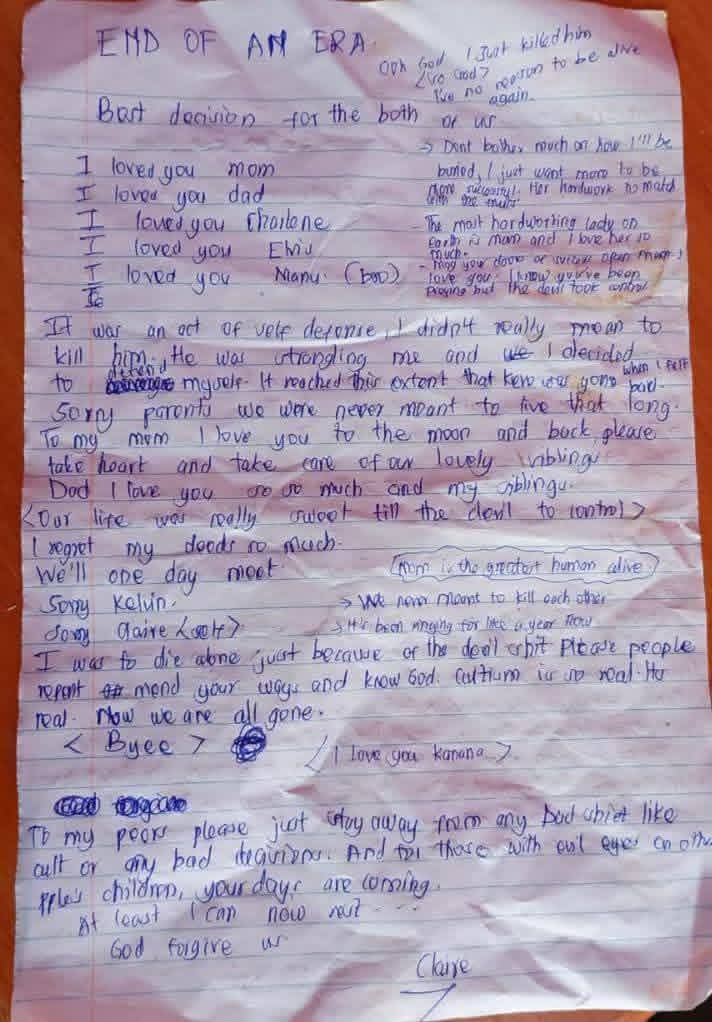 END OF AN ERA.
Ooh God I just killed him
<so sad>
I've no reason to be alive
again.
Best decision for the both of us
→ Dont bother much on how I'll be
buried, I just want mom to be
more successful. Her hardwork no match
with the
I loved you mom
I loved you dad
I loved you Charlene
I loved you Elvis
I loved you Manu. (boo)
- The most hardworking lady on
earth is mom and I love her so
much.
- May your doors of success open mom. I
love you. I know you've been
praying but the devil took control
It was an act of self defense, I didn't really mean to
kill him. He was strangling me and I decided
to defend myself. It reached this extent that Kevo was gone when I felt
bad.
Sorry parents we were never meant to live that long.
To my mom I love you to the moon and back, please
take heart and take care of our lovely siblings
Dad I love you so so much and my siblings.
<Our life was really sweet till the devil to control>
I regret my deeds so much.
We'll one day meet.
Mom is the greatest human alive.
Sorry Kelvin.
→ We never meant to kill each other
Sorry Claire <self>
→ It's been ringing for like a year now
I was to die alone just because of the devil Please people
repent mend your ways and know God. Cultism is so real. Its
real. Now we are all gone.
< Byee >
< I love you Kanana >
To my peers please just stay away from any bad like
cult or any bad decisions. And for those with evil eyes on other
children, your days are coming.
At least I can now rest ...
God forgive us
Claire